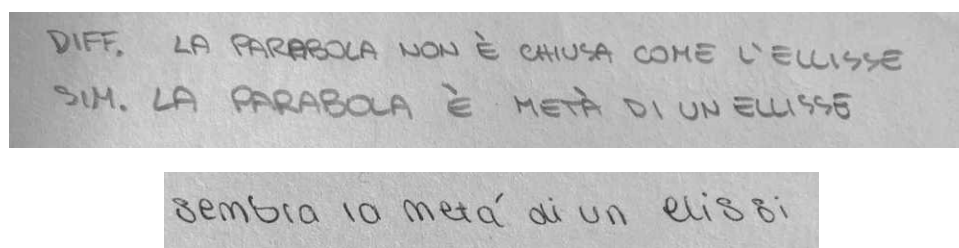 DIFF. LA PARABOLA NON È CHIUSA COME L'ELLISSE
SIM. LA PARABOLA È METÀ DI UN ELLISSE
sembra la metá di un elissi